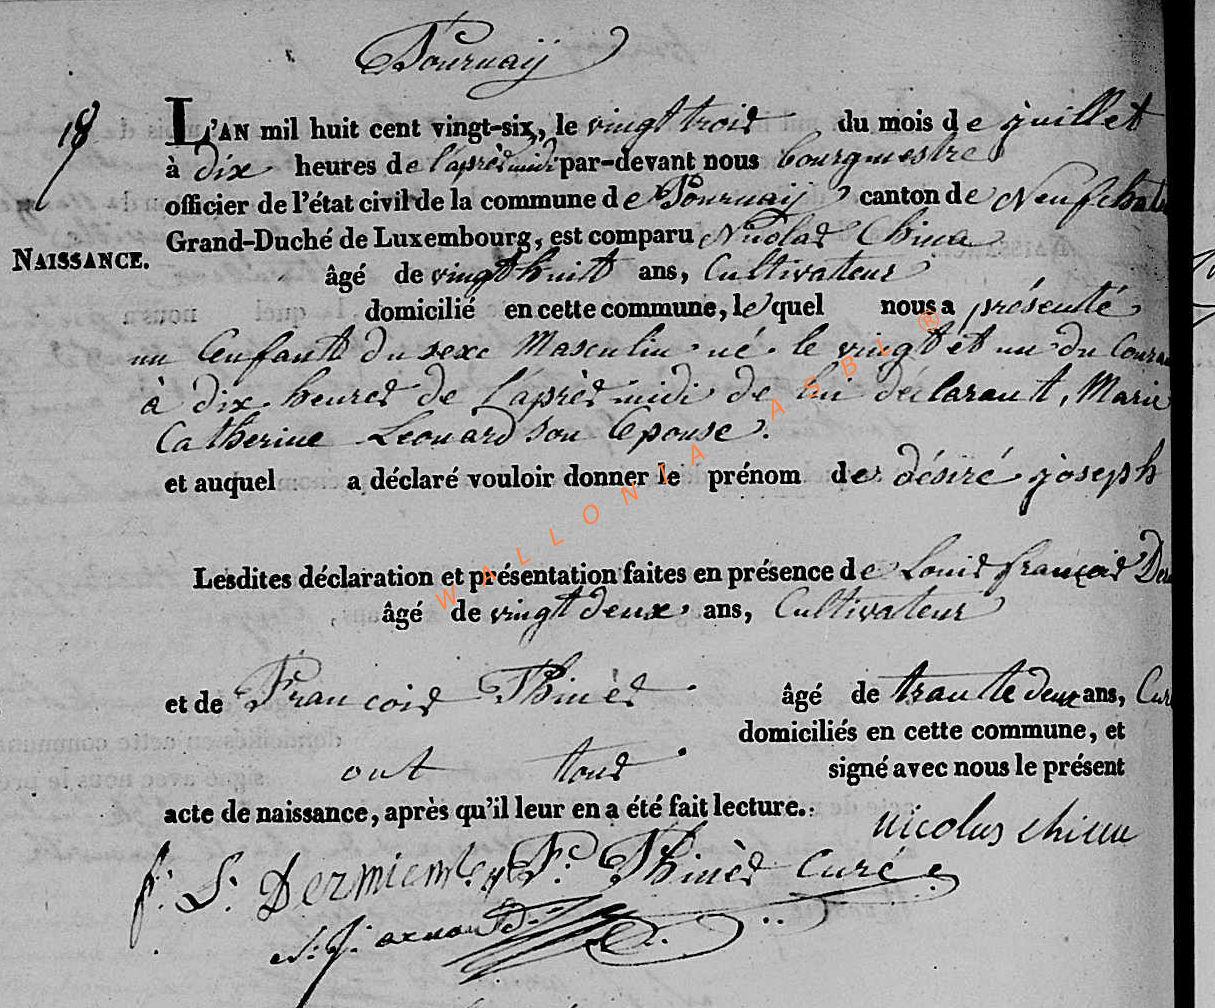 Tournaÿ
18
L'AN mil huit cent vingt-six, le vingt trois du mois de juillet
à dix heures de l'après midi par-devant nous bourgmestre
officier de l'état civil de la commune de Tournaÿ canton de Neufchate
NAISSANCE.
Grand-Duché de Luxembourg, est comparu Nicolas China
âgé de vingt huit ans, Cultivateur
domicilié en cette commune, lequel nous a présenté
un Enfant du sexe Masculin né le vingt et un du Coura
à dix heures de l'après midi de lui déclarant, Marie
Catherine Leonard son Epouse.
et auquel a déclaré vouloir donner le prénom de désiré joseph
Lesdites déclaration et présentation faites en présence de Louis françois Der
âgé de vingt deux ans, Cultivateur
et de François Thinès âgé de trante deux ans, Curé
domiciliés en cette commune, et
ont tous signé avec nous le présent
acte de naissance, après qu'il leur en a été fait lecture.
nicolas china
f. L. F. Thinès Curé
J. arnould
WALLONIA ASBL ®